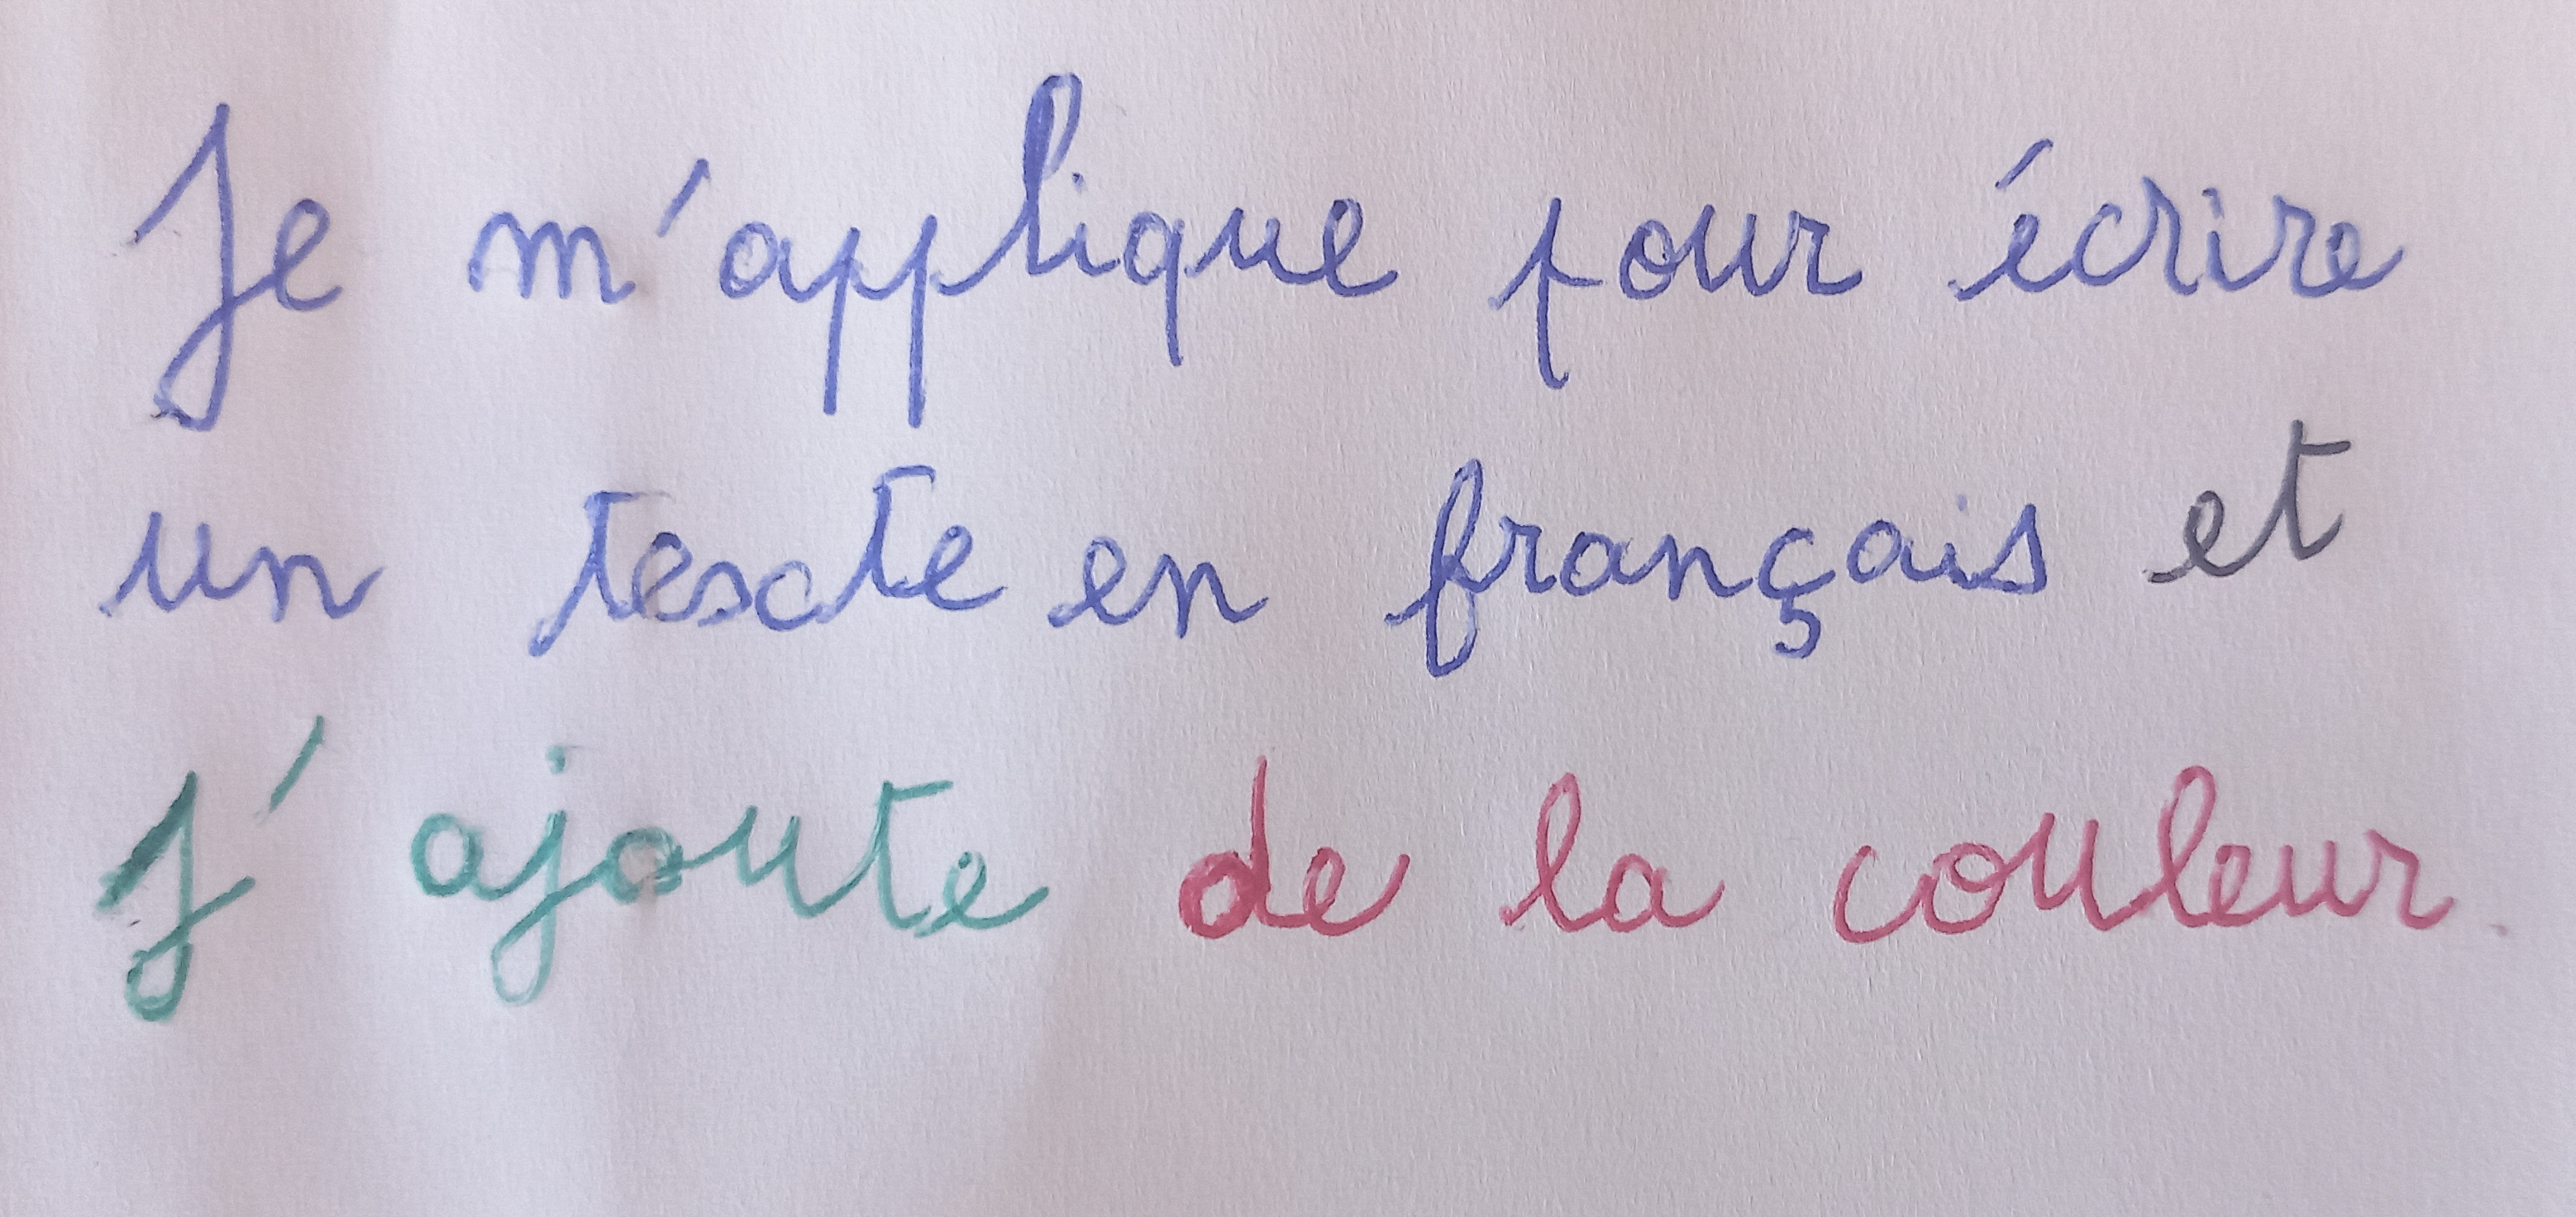 Je m'applique pour écrire
un texte en français et
j'ajoute de la couleur.